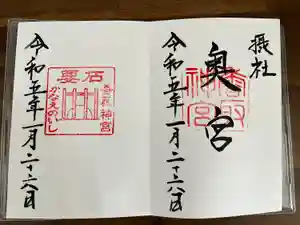 摂社
奥宮
香取神宮
令和五年一月二十八日
要石
香取神宮
かなめいし
令和五年一月二十八日